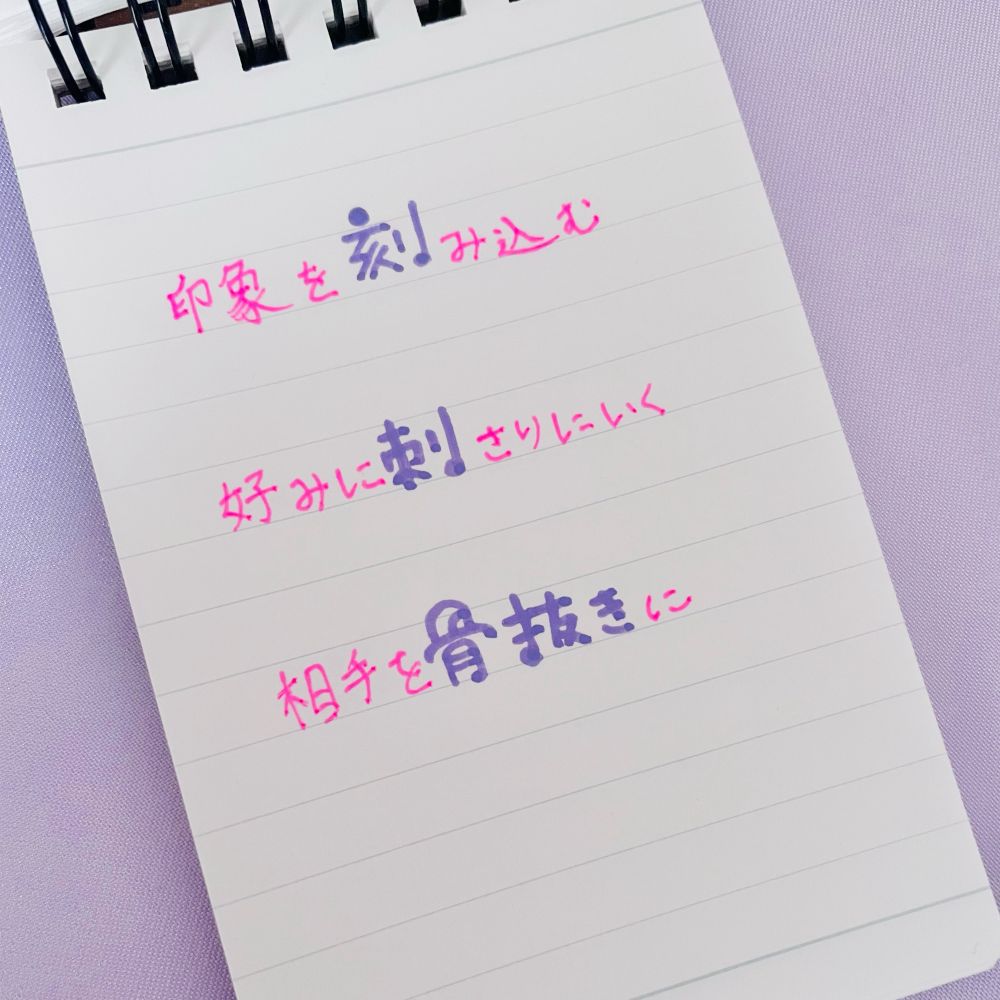 印象を刻み込む
好みに刺さりにいく
相手を骨抜きに